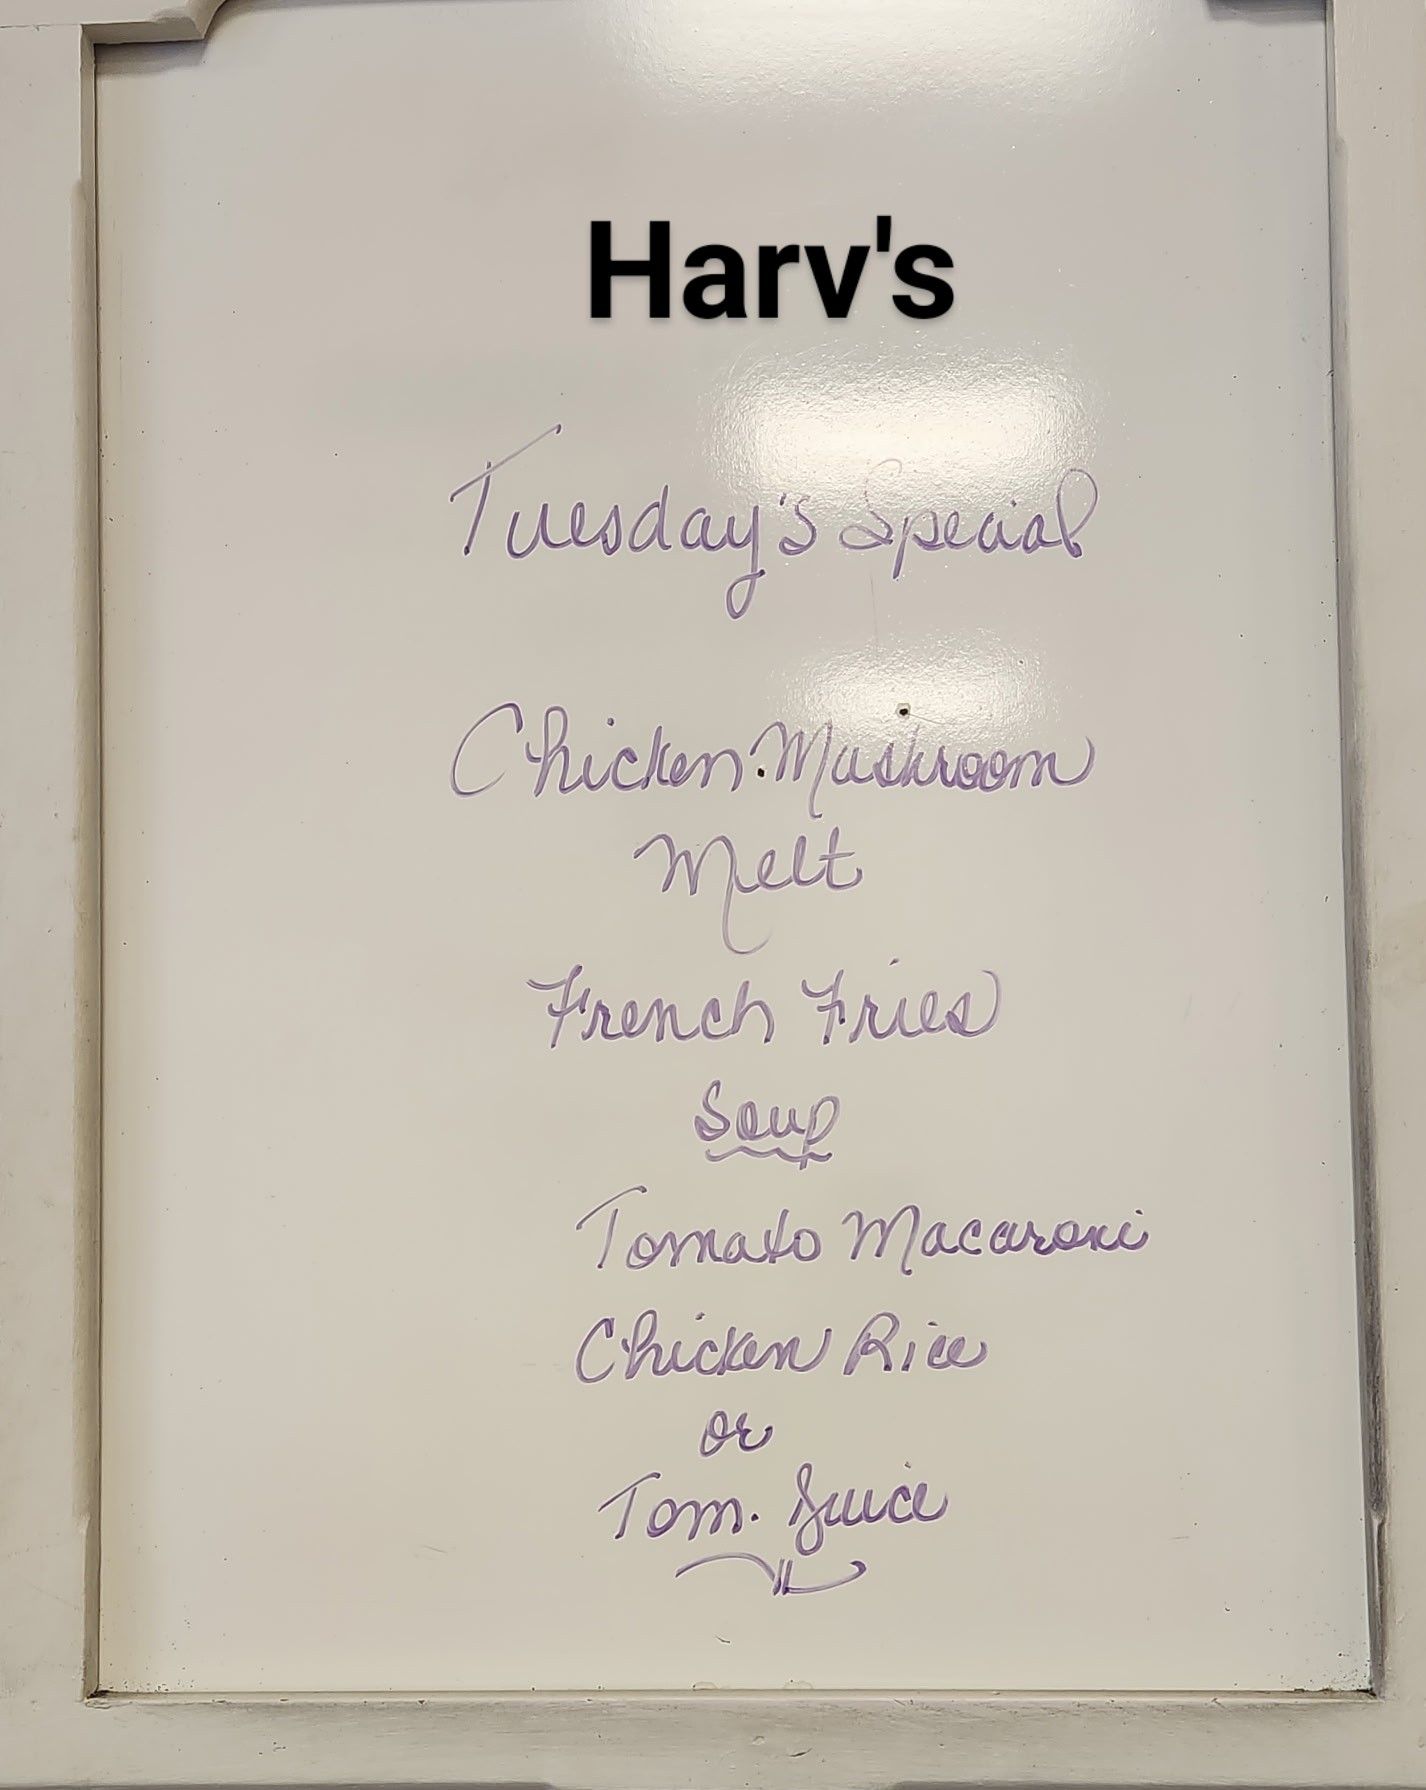 Harv's
Tuesday's Special
Chicken Mushroom
Melt
French Fries
Soup
Tomato Macaroni
Chicken Rice
or
Tom. Juice